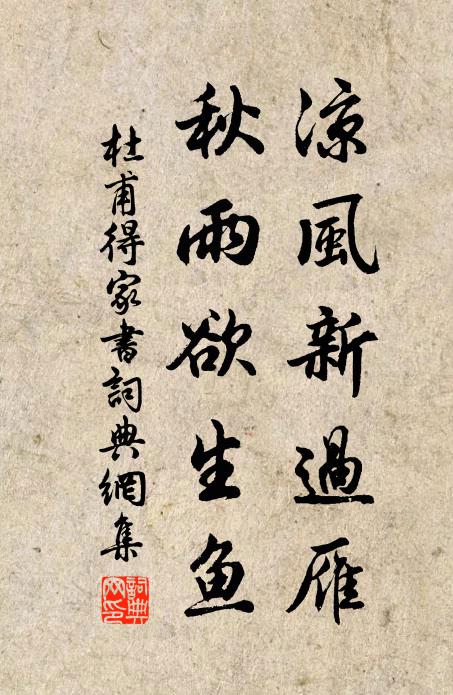 涼風新過雁
秋雨欲生魚
杜甫得家書詞典網集
詞典網印